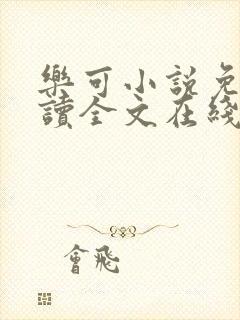 樂可小說免
讀全文在綫
會飛